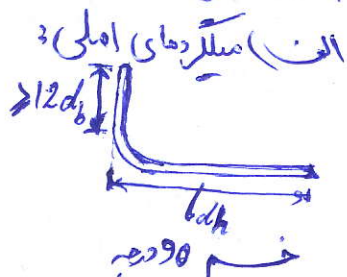 الف) میلگردهای اصلی:
≥12db
ldh
خم 90 درجه